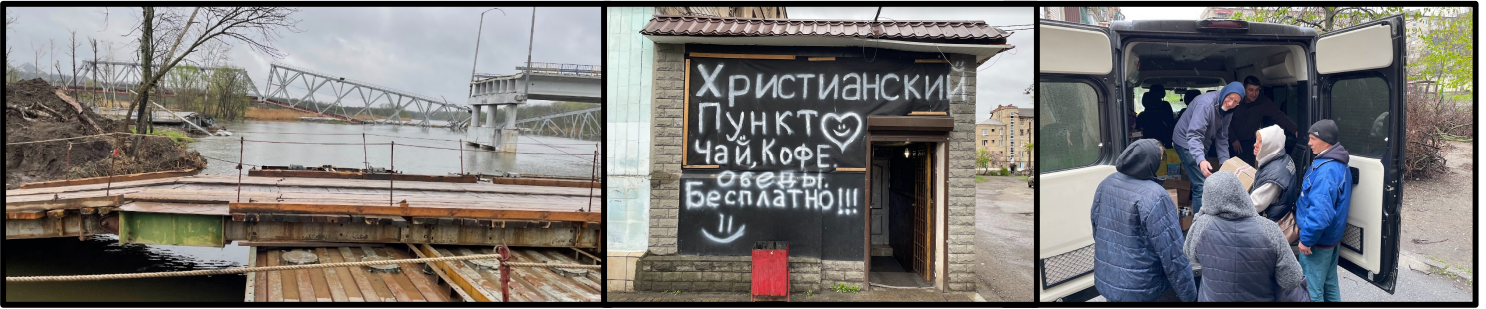 Христианский
Пункт
Чай, Кофе.
обеды.
Бесплатно!!!